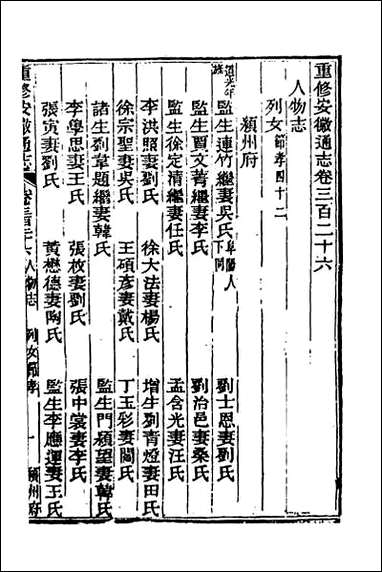 重修安徽通志卷三百二十六
人物志
列女 節孝四十二
潁州府
道光年
監生連竹繼妻吳氏 阜陽人下同 劉士恩妻劉氏
監生賈文菁繼妻李氏 劉治邑妻桑氏
監生徐定清繼妻任氏 孟含光妻汪氏
李洪照妻劉氏 徐大法妻楊氏 增生劉青燈妻田氏
徐宗聖妻吳氏 王碩彥妻戴氏 丁玉彩妻閻氏
諸生劉韋題繼妻韓氏 監生門潁望妻韓氏
李學思妻王氏 張枚妻劉氏 張中裳妻李氏
張寅妻劉氏 黃懋德妻陶氏 監生李應運妻王氏
重修安徽通志 卷三百二十六 人物志 列女節孝 一 潁州府